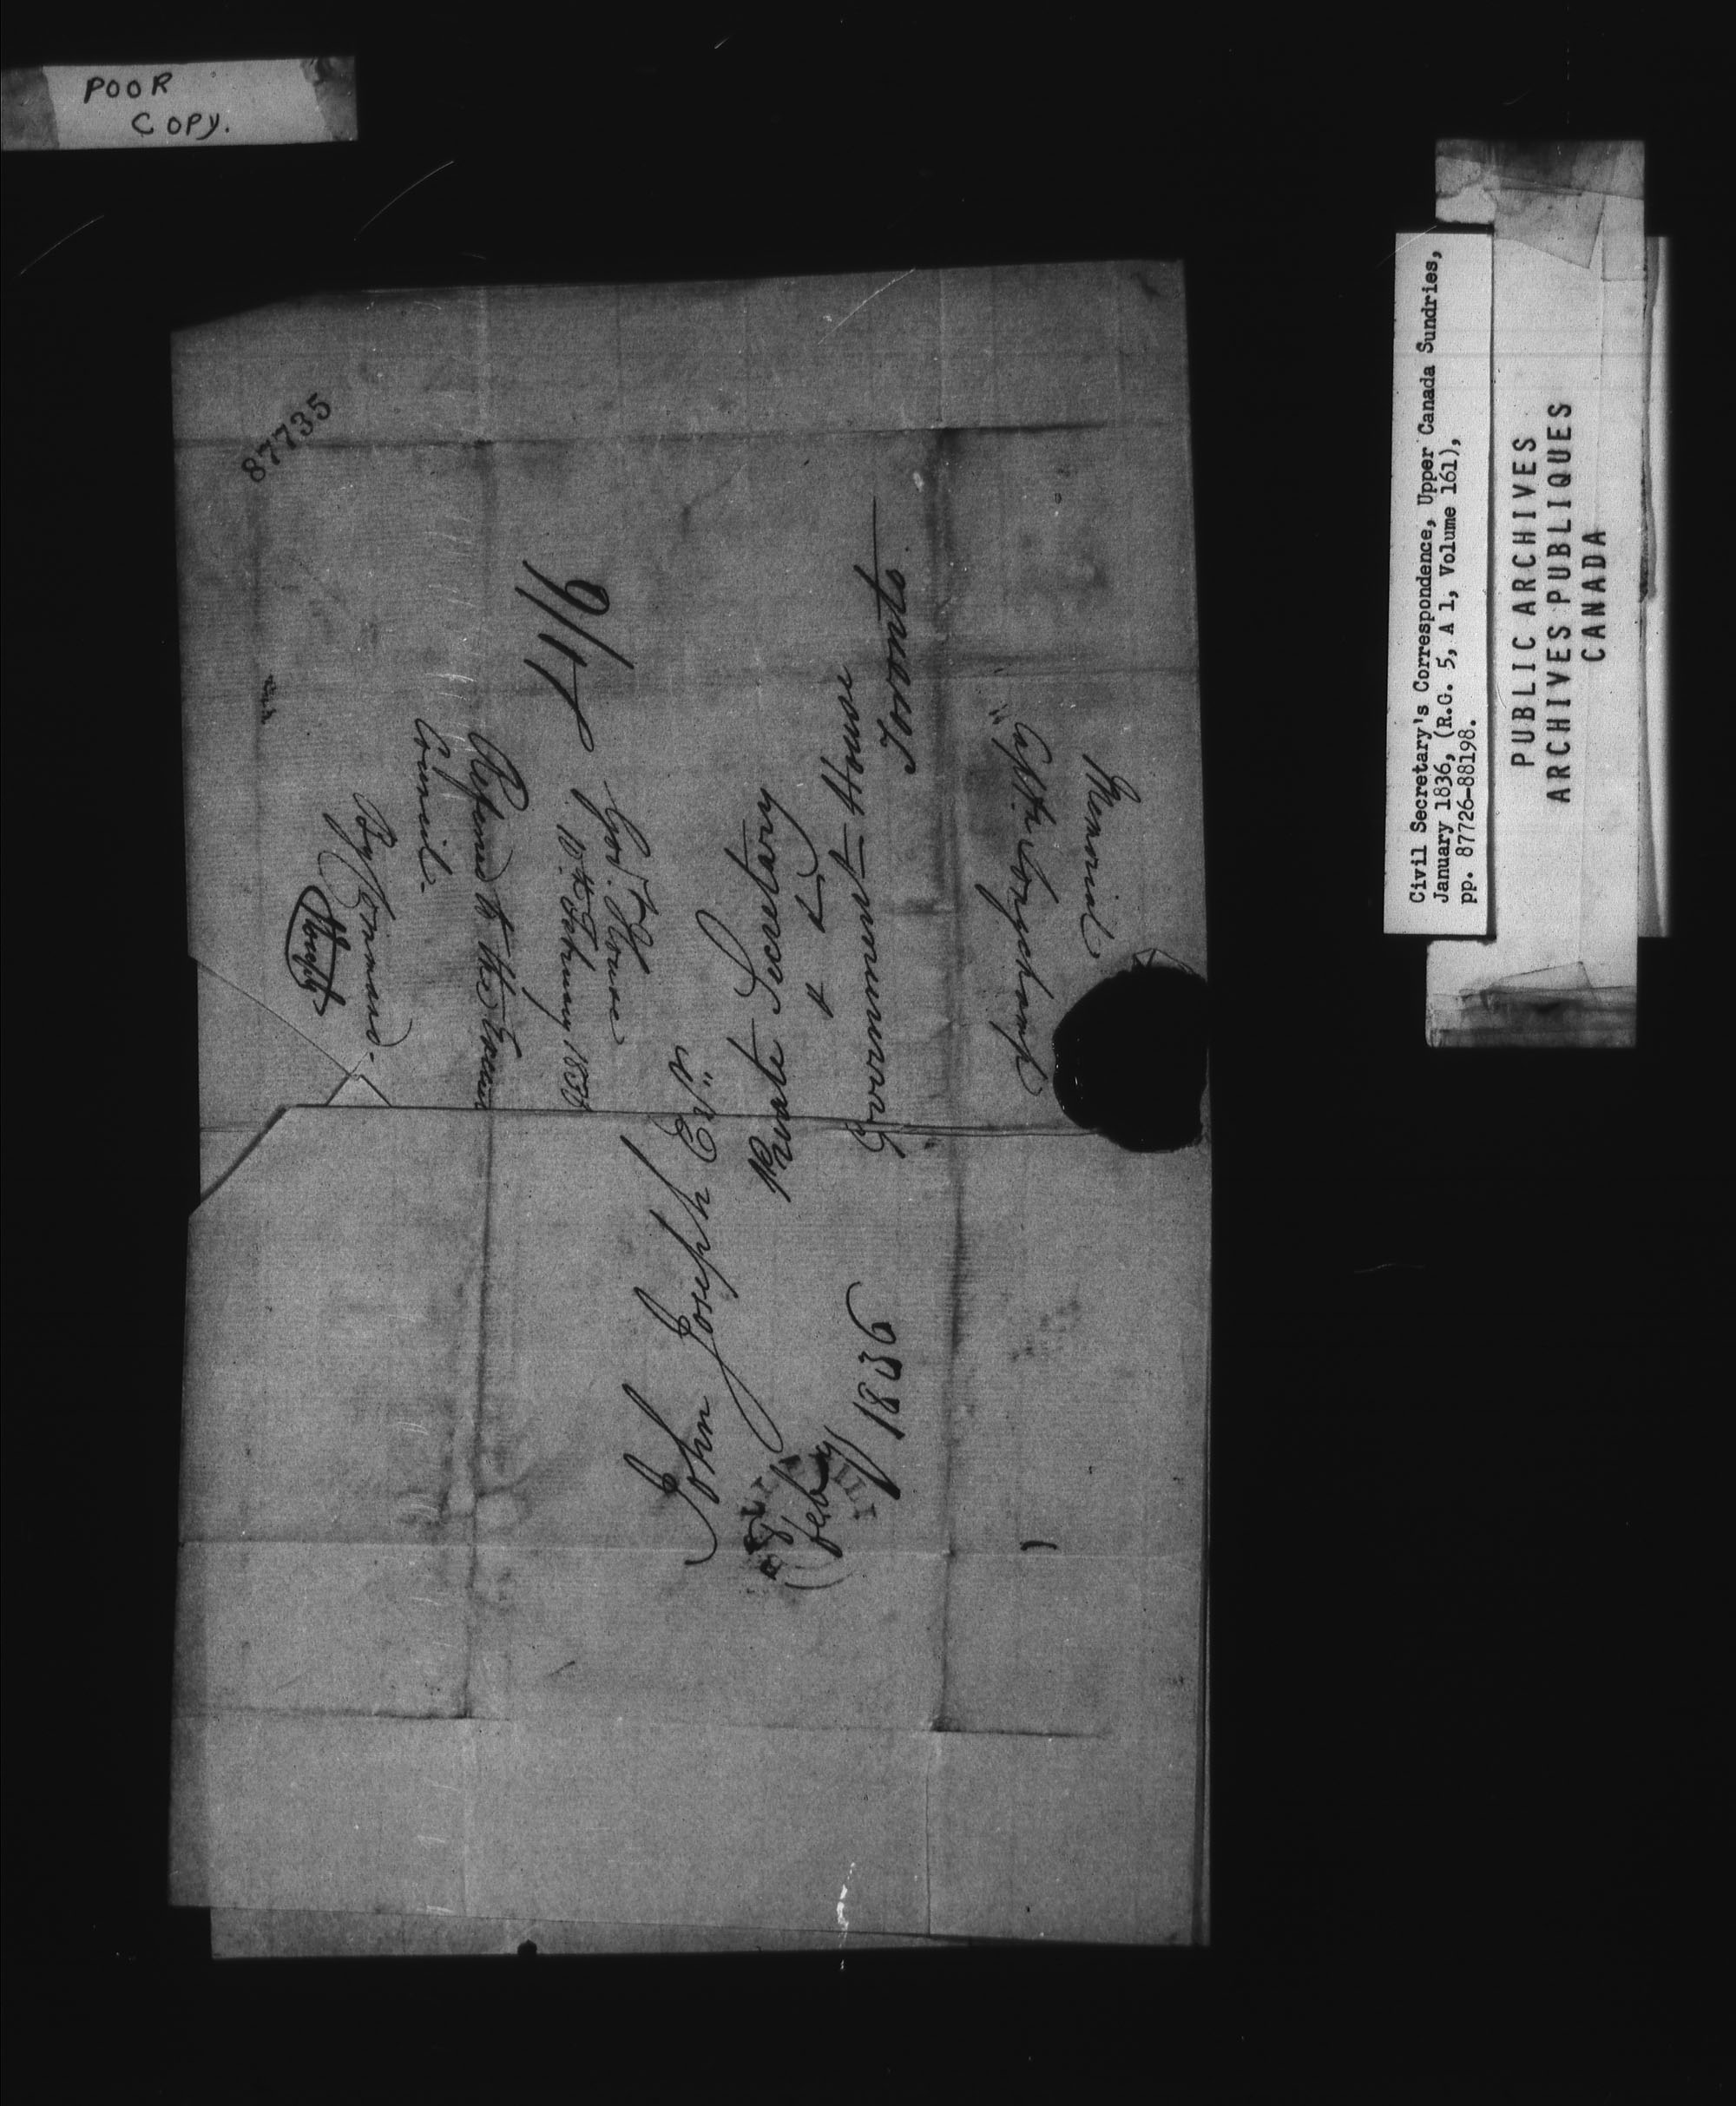 POOR
COPY.
87735
9/17
John Joseph Esqr
Private Secretary
&c &c
Government House
Toronto
Feby
1836
Memorial
Govt House
10th February 1836
Referred to the Executive
Council.
By Command
J Joseph
Civil Secretary's Correspondence, Upper Canada Sundries,
January 1836, (R.G. 5, A 1, Volume 161),
pp. 87726-88198.
PUBLIC ARCHIVES
ARCHIVES PUBLIQUES
CANADA